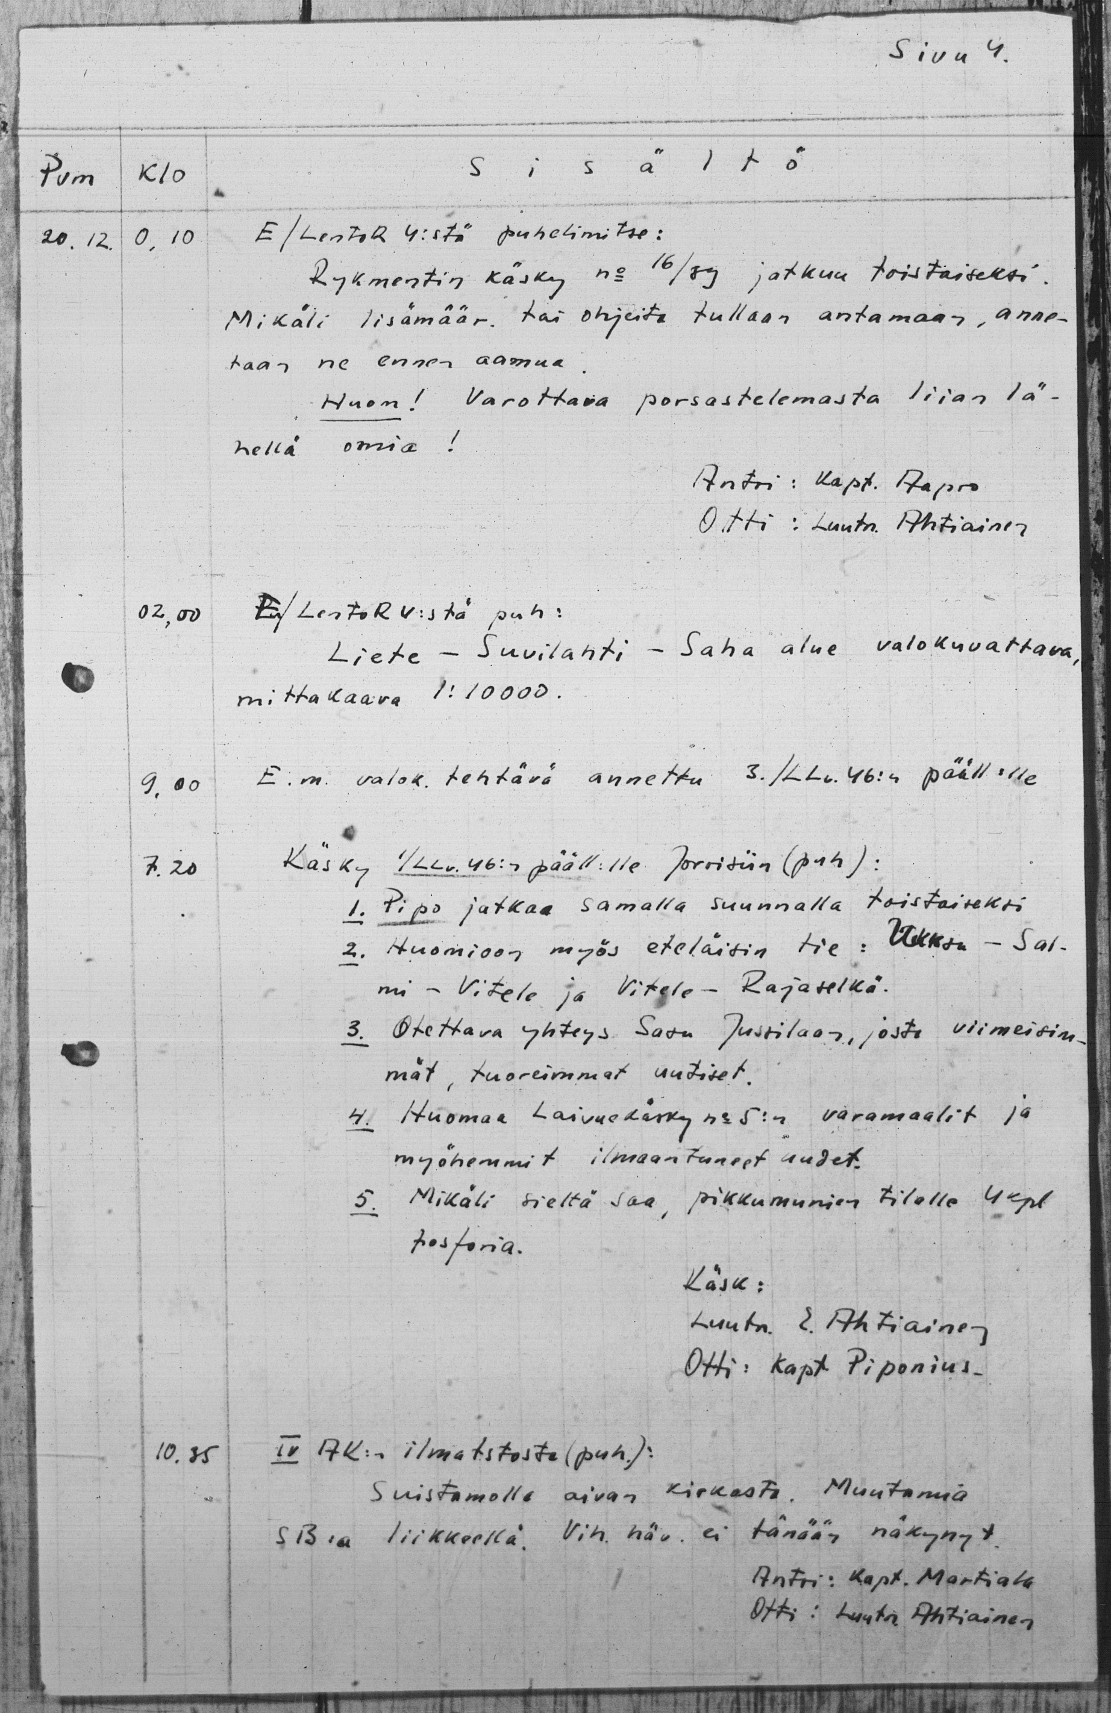 Sivu 4.
Pvm Klo Sisältö
20.12. 0,10 E/LentoR 4:stä puhelimitse:
Rykmentin käsky no 16/39 jatkuu toistaiseksi.
Mikäli lisämäär. tai ohjeita tullaan antamaan, anne-
taan ne ennen aamua.
Huom! Varottava porsastelemasta liian lä-
hellä omia!
Antoi: Kapt. Aapro
Otti: Luutn. Ahtiainen
02,00 E/LentoR 4:stä puh:
Liete - Suvilahti - Saha alue valokuvattava,
mittakaava 1:10000.
9,00 E.m. valok. tehtävä annettu 3./LLv.46:n pääll:lle
7.20 Käsky 1/LLv.46:n pääll:lle Joroisiin (puh):
1. Pipo jatkaa samalla suunnalla toistaiseksi
2. Huomioon myös eteläisin tie: Uuksu - Sal-
mi - Vitele ja Vitele - Rajaselkä.
3. Otettava yhteys Sasu Jussilaan, josta viimeisim-
mät, tuoreimmat uutiset.
4. Huomaa Laivuekäsky no 5:n varamaalit ja
myöhemmit ilmaantuneet uudet.
5. Mikäli sieltä saa, pikkumunien tilalle 4 kpl
fosforia.
Käsk:
Luutn. E. Ahtiainen
Otti: Kapt Piponius
10.35 IV AK:n ilmatstosta (puh.):
Suistamolla aivan kirkasta. Muutamia
SB:ia liikkeellä. Vih. häv. ei tänään näkynyt.
Antoi: Kapt. Martiala
Otti: Luutn Ahtiainen